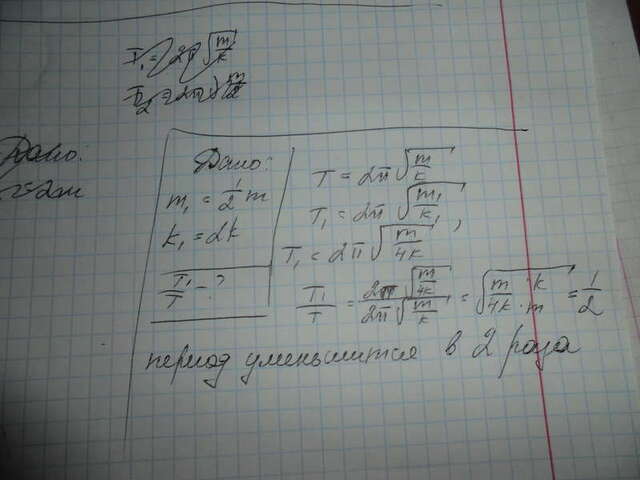 T₁ = 2π√(m/k)
T₂ = 2π√(m/2
Дано:
Дано:
m₁ = 1/2 m
k₁ = 2k
T₁/T - ?
T = 2π√(m/k)
T₁ = 2π√(m₁/k₁),
T₁ = 2π√(m/4k)
T₁/T = 2π√(m/4k) / 2π√(m/k) = √(m·k / 4k·m) = 1/2
период уменьшится в 2 раза